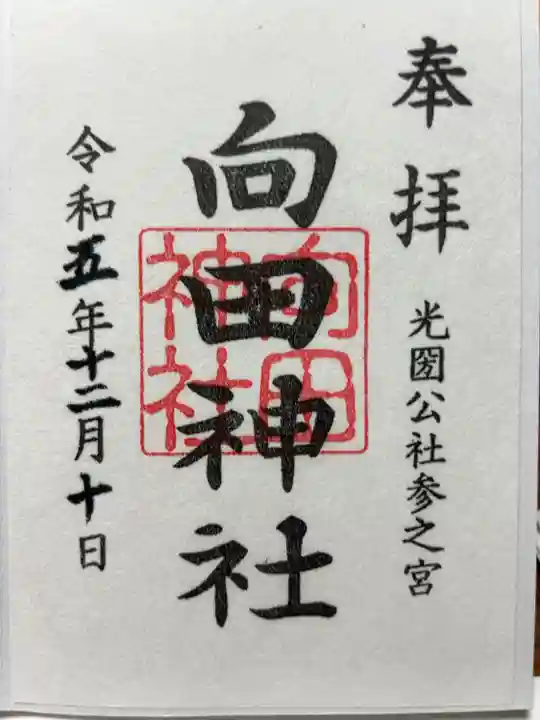 奉拝
光圀公社参之宮
向田神社
向田神社
令和五年十二月十日